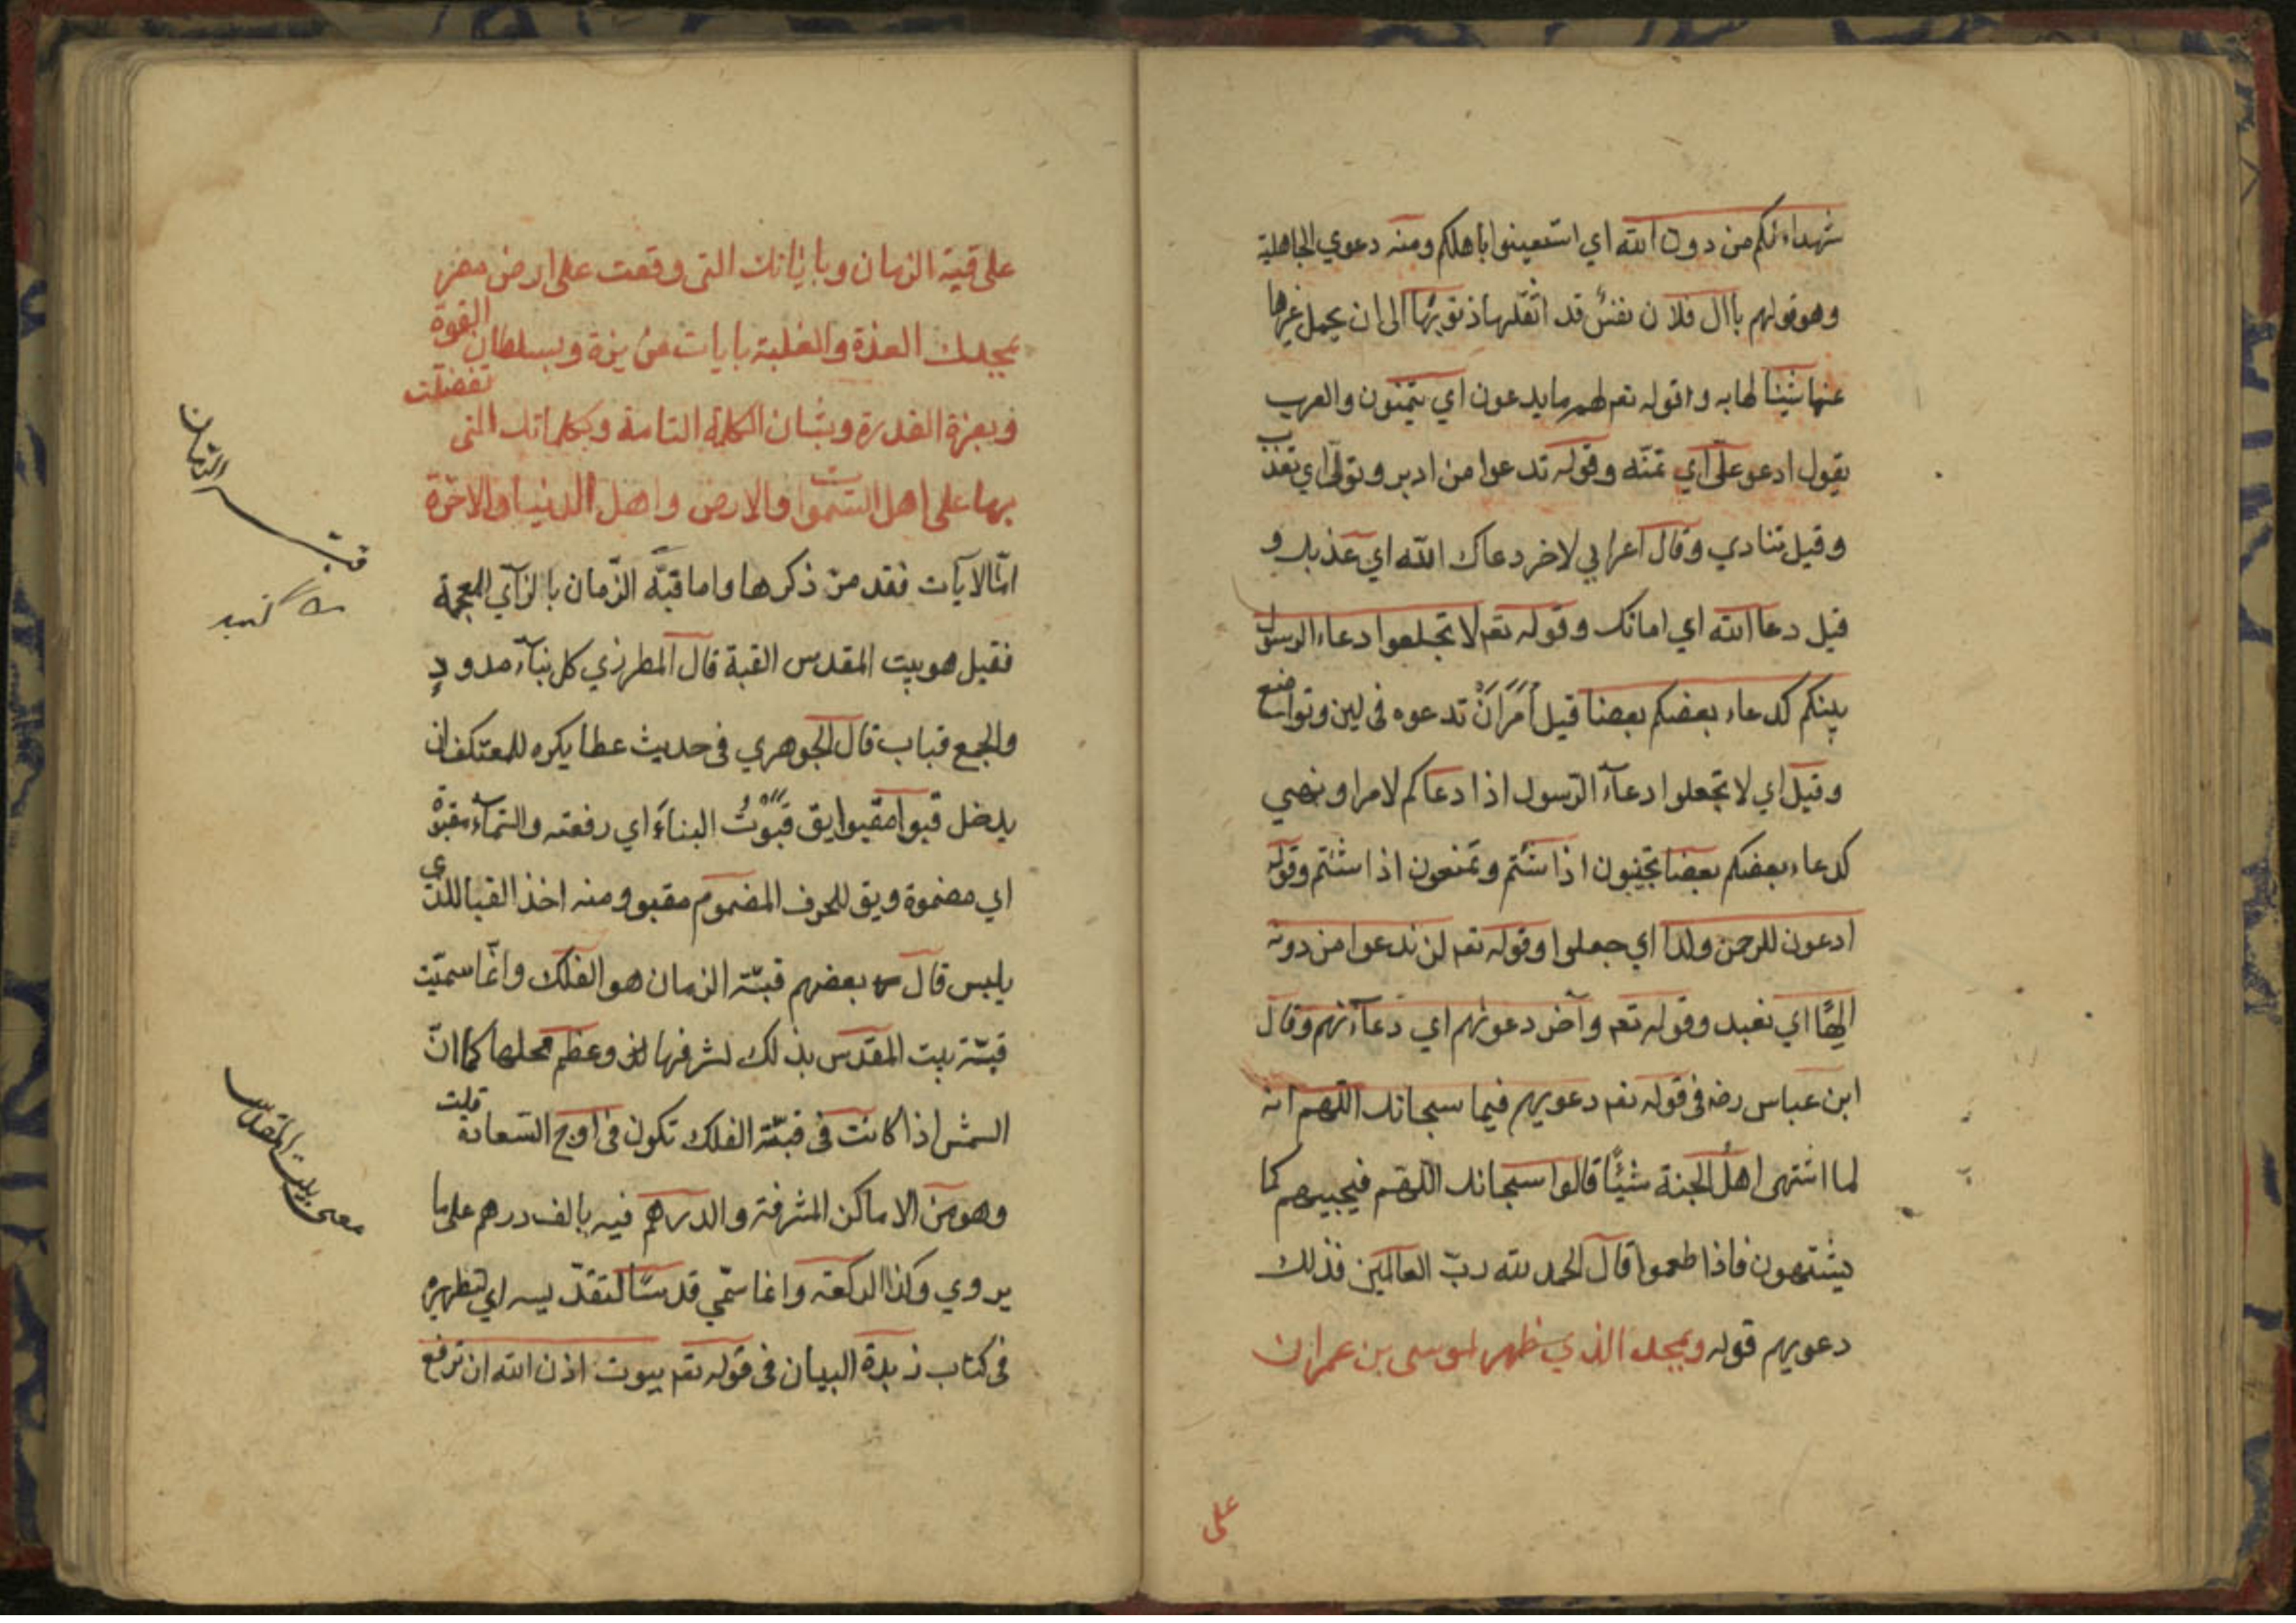 شهداءكم من دون الله اي استعينوا باهلكم ومنه دعوي الجاهلية
وهو قولهم باال فلان نفس قد اثقلها ذنوبها الى ان يحمل غيرها
عنها شيئا لها به و اقوله تعم لهم ما يدعون اي يتمنون والعرب
يقول ادعو علي اي تمنه وقوله تدعوا من ادبر وتولي اي تعذب
وقيل تنادي وقال اعرابي لاخر دعاك الله اي عذبك و
قيل دعا الله اي اماتك وقوله تعم لا تجعلوا دعاء الرسول
بينكم كدعاء بعضكم بعضا قيل أمر أن تدعوه فى لين وتواضع
وقيل اي لا تجعلوا دعآء الرسول اذا دعاكم لامر او نهي
كدعاء بعضكم بعضا تجيبون اذا شئتم وتمنعون اذا شئتم وقوله
ادعون للرحمن ولدا اي جعلوا وقوله تعم لن ندعوا من دونه
الهًا اي نعبد وقوله تعم وآخر دعوئهم اي دعآئهم وقال
ابن عباس رضه فى قوله تعم دعويهم فيما سبحانك اللهم انه
لما اشتهى اهل الجنة شيئًا قالوا سبحانك اللهم فيجيبهم كما
يشتهون فاذا طعموا قال الحمد لله ربّ العالمين فذلك
دعويهم قوله وبمجدك الذي ظهر لموسى بن عمران
على
على قبة الزمان وباياتك التى وقعت على ارض مصر
بمجدك العزة والغلبة بايات عزيزة وبسلطان القوة
وبعزة القدرة وبشان الكلمة التامة وبكلماتك التى تفضلت
بها على اهل السموات والارض واهل الدنيا والاخرة
امّا الآيات فقد من ذكرها واما قبّة الزّمان بالزآي المعجمة
فقيل هو بيت المقدس القبة قال المطرزي كل بنآء مدور
والجمع قباب قال الجوهري فى حديث عطا يكره للمعتكف ان
يدخل قبوا مقبوا يق قبوت البناء اي رفعته والسمآء مقبوة
اي مضمومة ويق للحرف المضموم مقبو ومنه اخذ القبا الذي
يلبس قال بعضهم قبّة الزمان هو الفلك وانّما سميّت
قبّة بيت المقدس بذلك لشرفها وعظم محلها كما انّ
الشمس اذا كانت فى قبّة الفلك تكون فى اوج السّعادة قلت
وهو من الاماكن المشرفة والدرهم فيه بالف درهم على ما
يروي وكذا الركعة وانما سمّي قدسًا لتقدّيسه اي لتطهيره
فى كتاب زبدة البيان فى قوله تعم بيوت اذن الله ان ترفع
قبة الزمان
معنى بيت المقدس